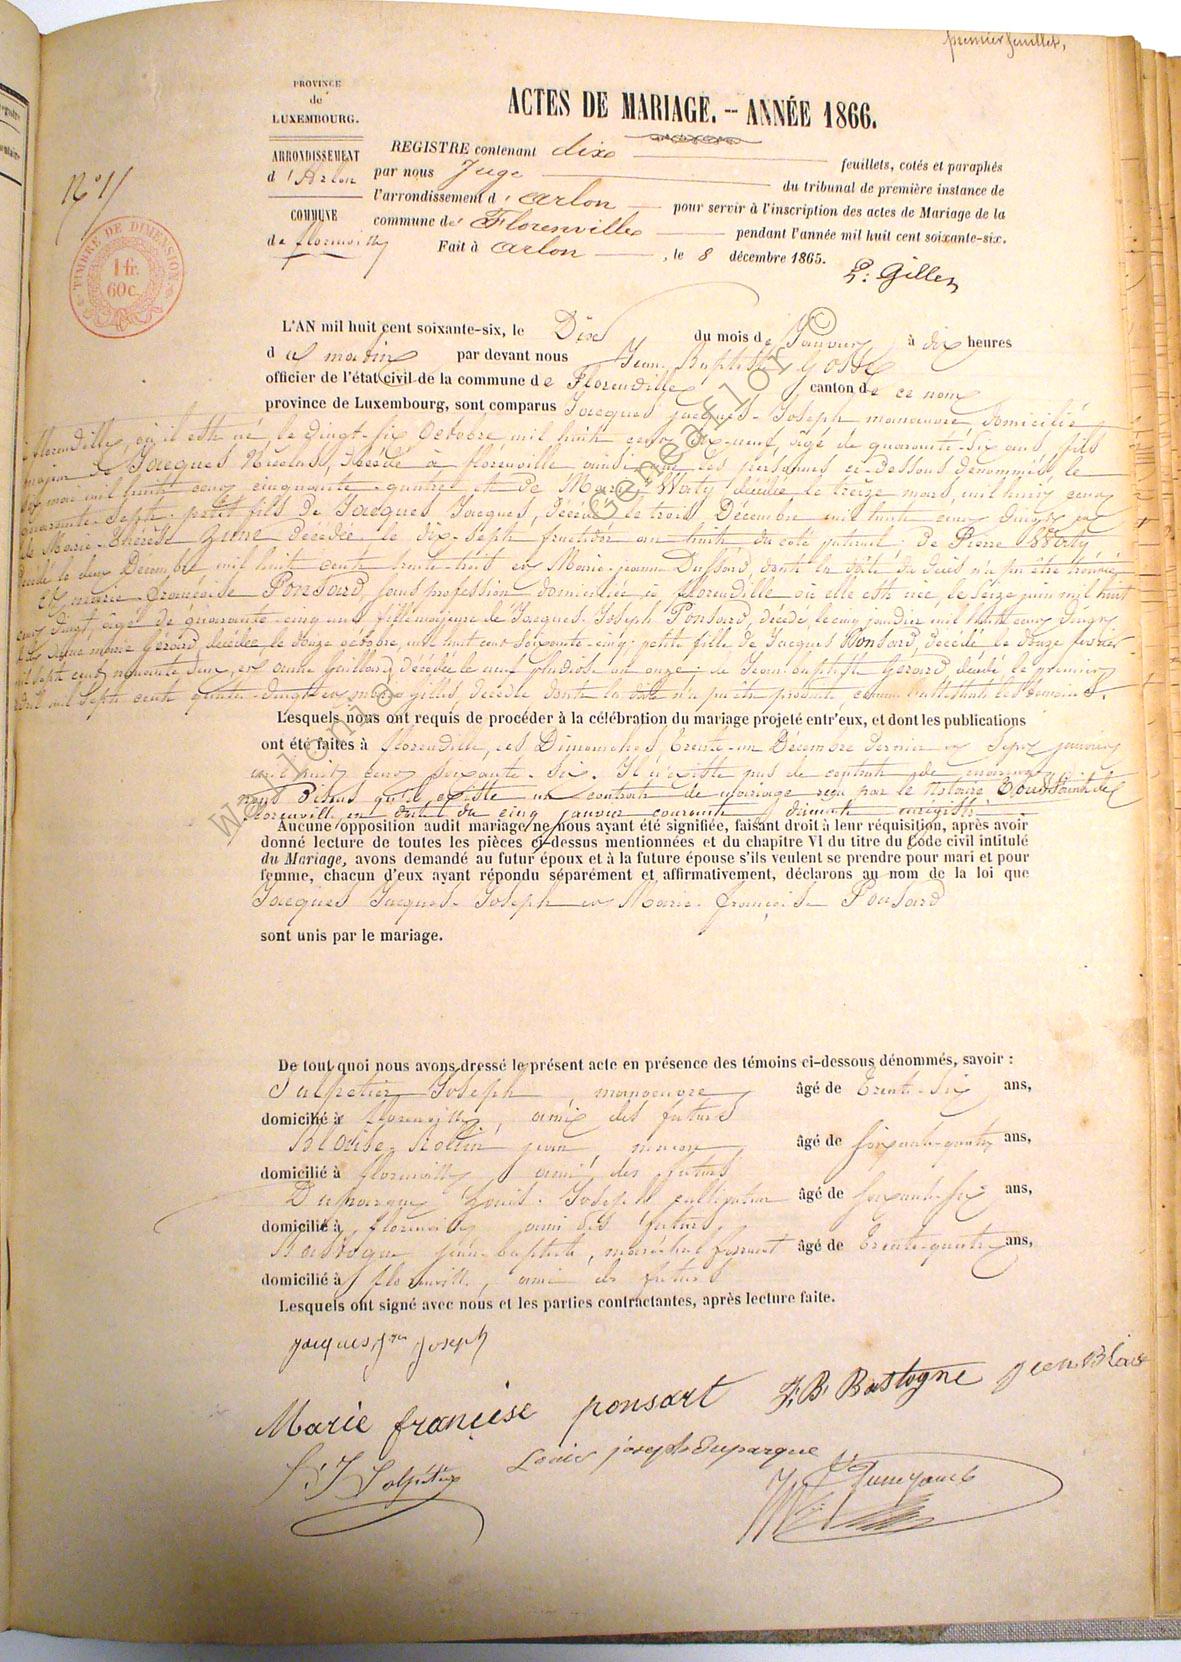 premier feuillet,
PROVINCE
de
LUXEMBOURG.
ARRONDISSEMENT
d'Arlon
COMMUNE
de florenville
N° 1
TIMBRE DE DIMENSION
1 fr.
60 c.
ACTES DE MARIAGE. -- ANNÉE 1866.
REGISTRE contenant dix feuillets, cotés et paraphés
par nous Juge du tribunal de première instance de
l'arrondissement d'Arlon pour servir à l'inscription des actes de Mariage de la
commune de Florenville pendant l'année mil huit cent soixante-six.
Fait à Arlon, le 8 décembre 1865.
L'AN mil huit cent soixante-six, le Dix du mois de Janvier à dix heures
du matin par devant nous Jean Baptiste
officier de l'état civil de la commune de Florenville canton de ce nom
province de Luxembourg, sont comparus Jacques Jacques-Joseph, manœuvre, domicilié
à florenville, où il est né, le vingt-six Octobre mil huit cent dix-neuf, âgé de quarante-six ans, fils
majeur de Jacques Nicolas, décédé à florenville ainsi que les personnes ci-dessous dénommés, le
six mai mil huit cent cinquante-quatre et de Marie Waty décédée le treize mars mil huit cent
quarante-sept; petit fils de Jacques Jacques, décédé le trois Décembre mil huit cent
de Marie-Thérèse décédée le dix-sept fructidor an huit du coté paternel; de Pierre Waty
décédé le deux Décembre mil huit cent trente-trois et Marie-jeanne dont la date du décès n'a pu être trouvée
Et marie-françoise Ponsard, sans profession domiciliée à florenville où elle est née, le seize juin mil huit
cent vingt, âgée de quarante-cinq ans fille majeure de Jacques-Joseph Ponsard, décédé le cinq janvier mil huit cent vingt
marie Gérard, décédée le douze octobre, mil huit cent soixante-cinq; petite fille de Jacques Ponsard, décédé le douze février
mil sept cent nonante deux, et anne décédée le neuf an onze; de Jean-baptiste Gérard décédé le premier
avril mil sept cent quatre-vingt et marie gilles, décédée dont la date n'a pu être produite, comme l'attestent les témoins.
Lesquels nous ont requis de procéder à la célébration du mariage projeté entr'eux, et dont les publications
ont été faites à florenville, les Dimanches trente-un Décembre dernier et sept janvier
mil huit cent soixante-six. Il n'existe pas de contrat de mariage
nous disons qu'il existe un contrat de mariage reçu par le Notaire
florenville en date du cinq janvier courant
Aucune opposition audit mariage ne nous ayant été signifiée, faisant droit à leur réquisition, après avoir
donné lecture de toutes les pièces ci-dessus mentionnées et du chapitre VI du titre du Code civil intitulé
du Mariage, avons demandé au futur époux et à la future épouse s'ils veulent se prendre pour mari et pour
femme, chacun d'eux ayant répondu séparément et affirmativement, déclarons au nom de la loi que
Jacques Jacques-Joseph et Marie-françoise Ponsard
sont unis par le mariage.
De tout quoi nous avons dressé le présent acte en présence des témoins ci-dessous dénommés, savoir :
Salpetier Joseph, manoeuvre âgé de trente-six ans,
domicilié à florenville, ami des futurs
Blaise jean, macon âgé de soixante-quatre ans,
domicilié à florenville ami des futurs
Duparque Louis-Joseph cultivateur âgé de soixante-six ans,
domicilié à florenville ami des futurs,
Bastogne jean-baptiste, maréchal ferrant âgé de trente-quatre ans,
domicilié à florenville, ami des futurs
Lesquels ont signé avec nous et les parties contractantes, après lecture faite.
Jacques Jques joseph
Marie françise ponsart J.B. Bastogne jean Blaise
Louis joseph Duparque